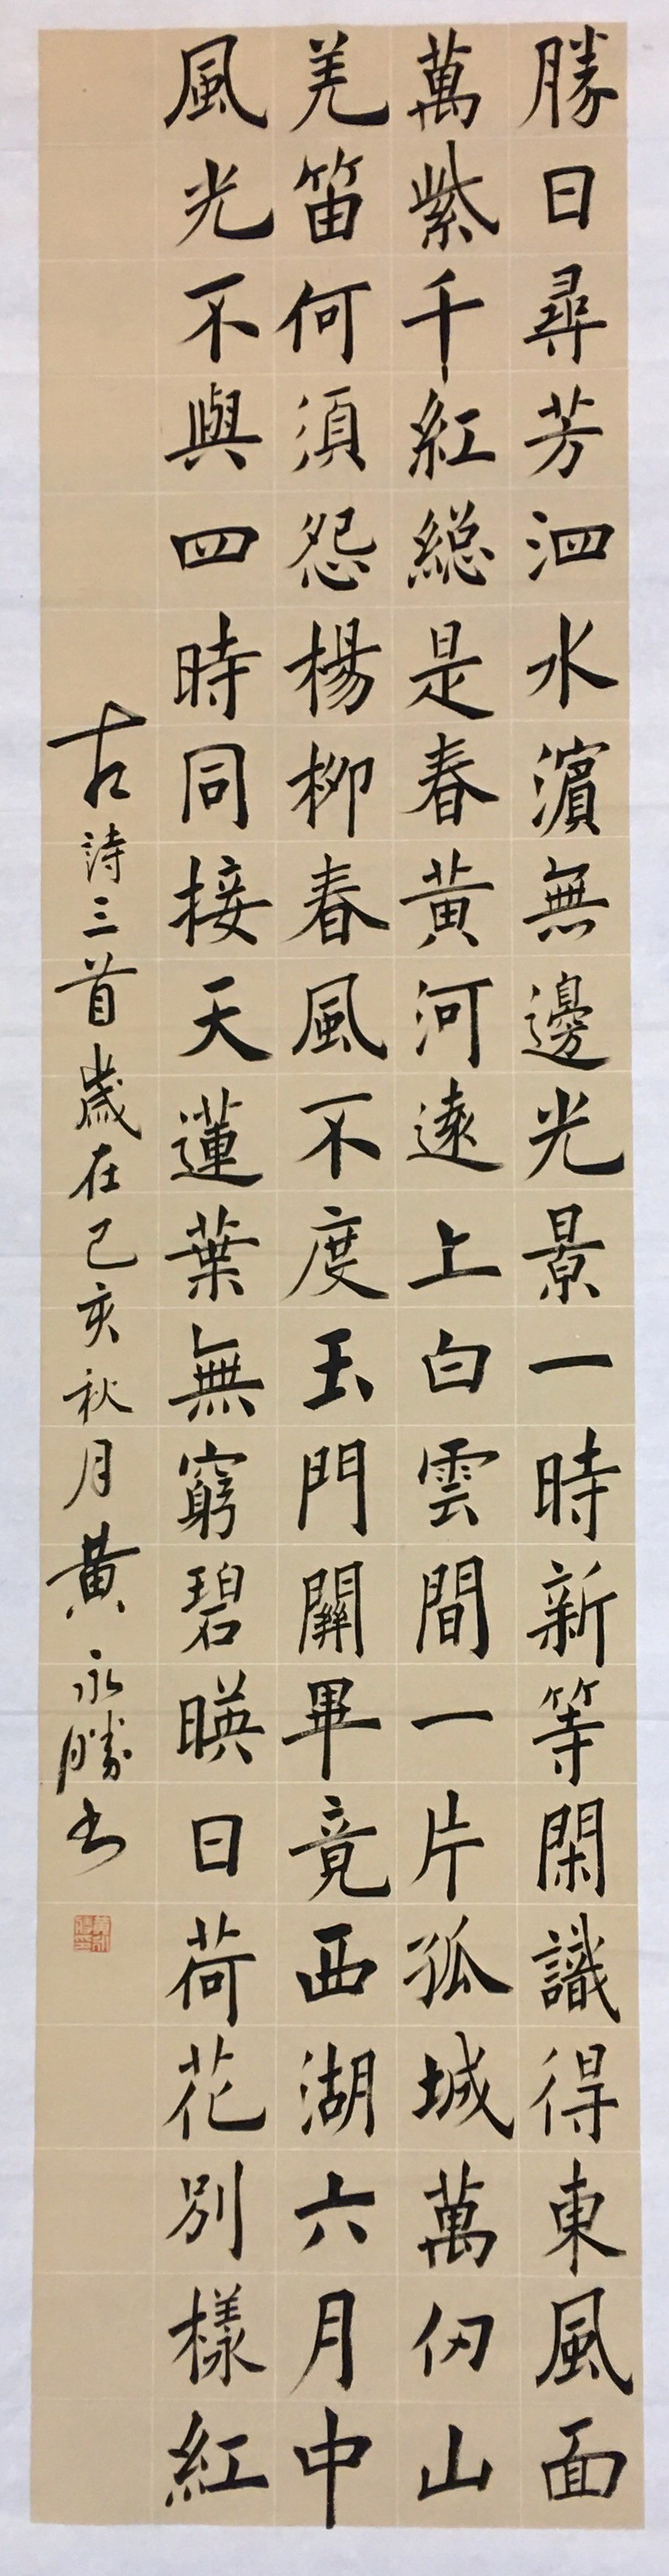 勝日尋芳泗水濵無邊光景一時新等閑識得東風面
萬紫千紅緫是春黄河遠上白雲間一片孤城萬仞山
羌笛何須怨楊柳春風不度玉門關畢竟西湖六月中
風光不與四時同接天蓮葉無窮碧暎日荷花別樣紅
古詩三首歲在己亥秋月黄永勝书